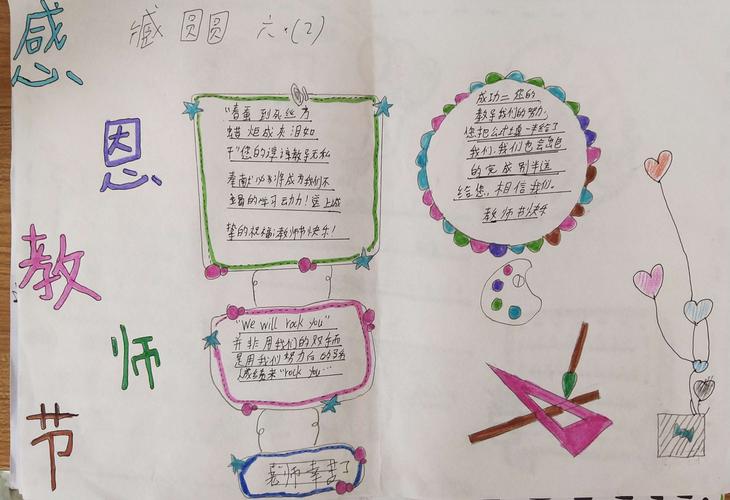 感
恩
教
师
节
臧圆圆 六.(2)
"春蚕到死丝方
蜡炬成灰泪如
干"您的谆谆教导无私
奉献必将成为我们不
竭的学习动力!送上诚
挚的祝福:教师节快乐!
"We will rock you"
并非用我们的双手而
是用我们努力后的
成绩来"rock you…
老师辛苦了
成功=您的
教导我们的努力,
您把公式填一半给了
我们,我们也会出色
的完成另半送
给您,相信我们.
教师节快乐